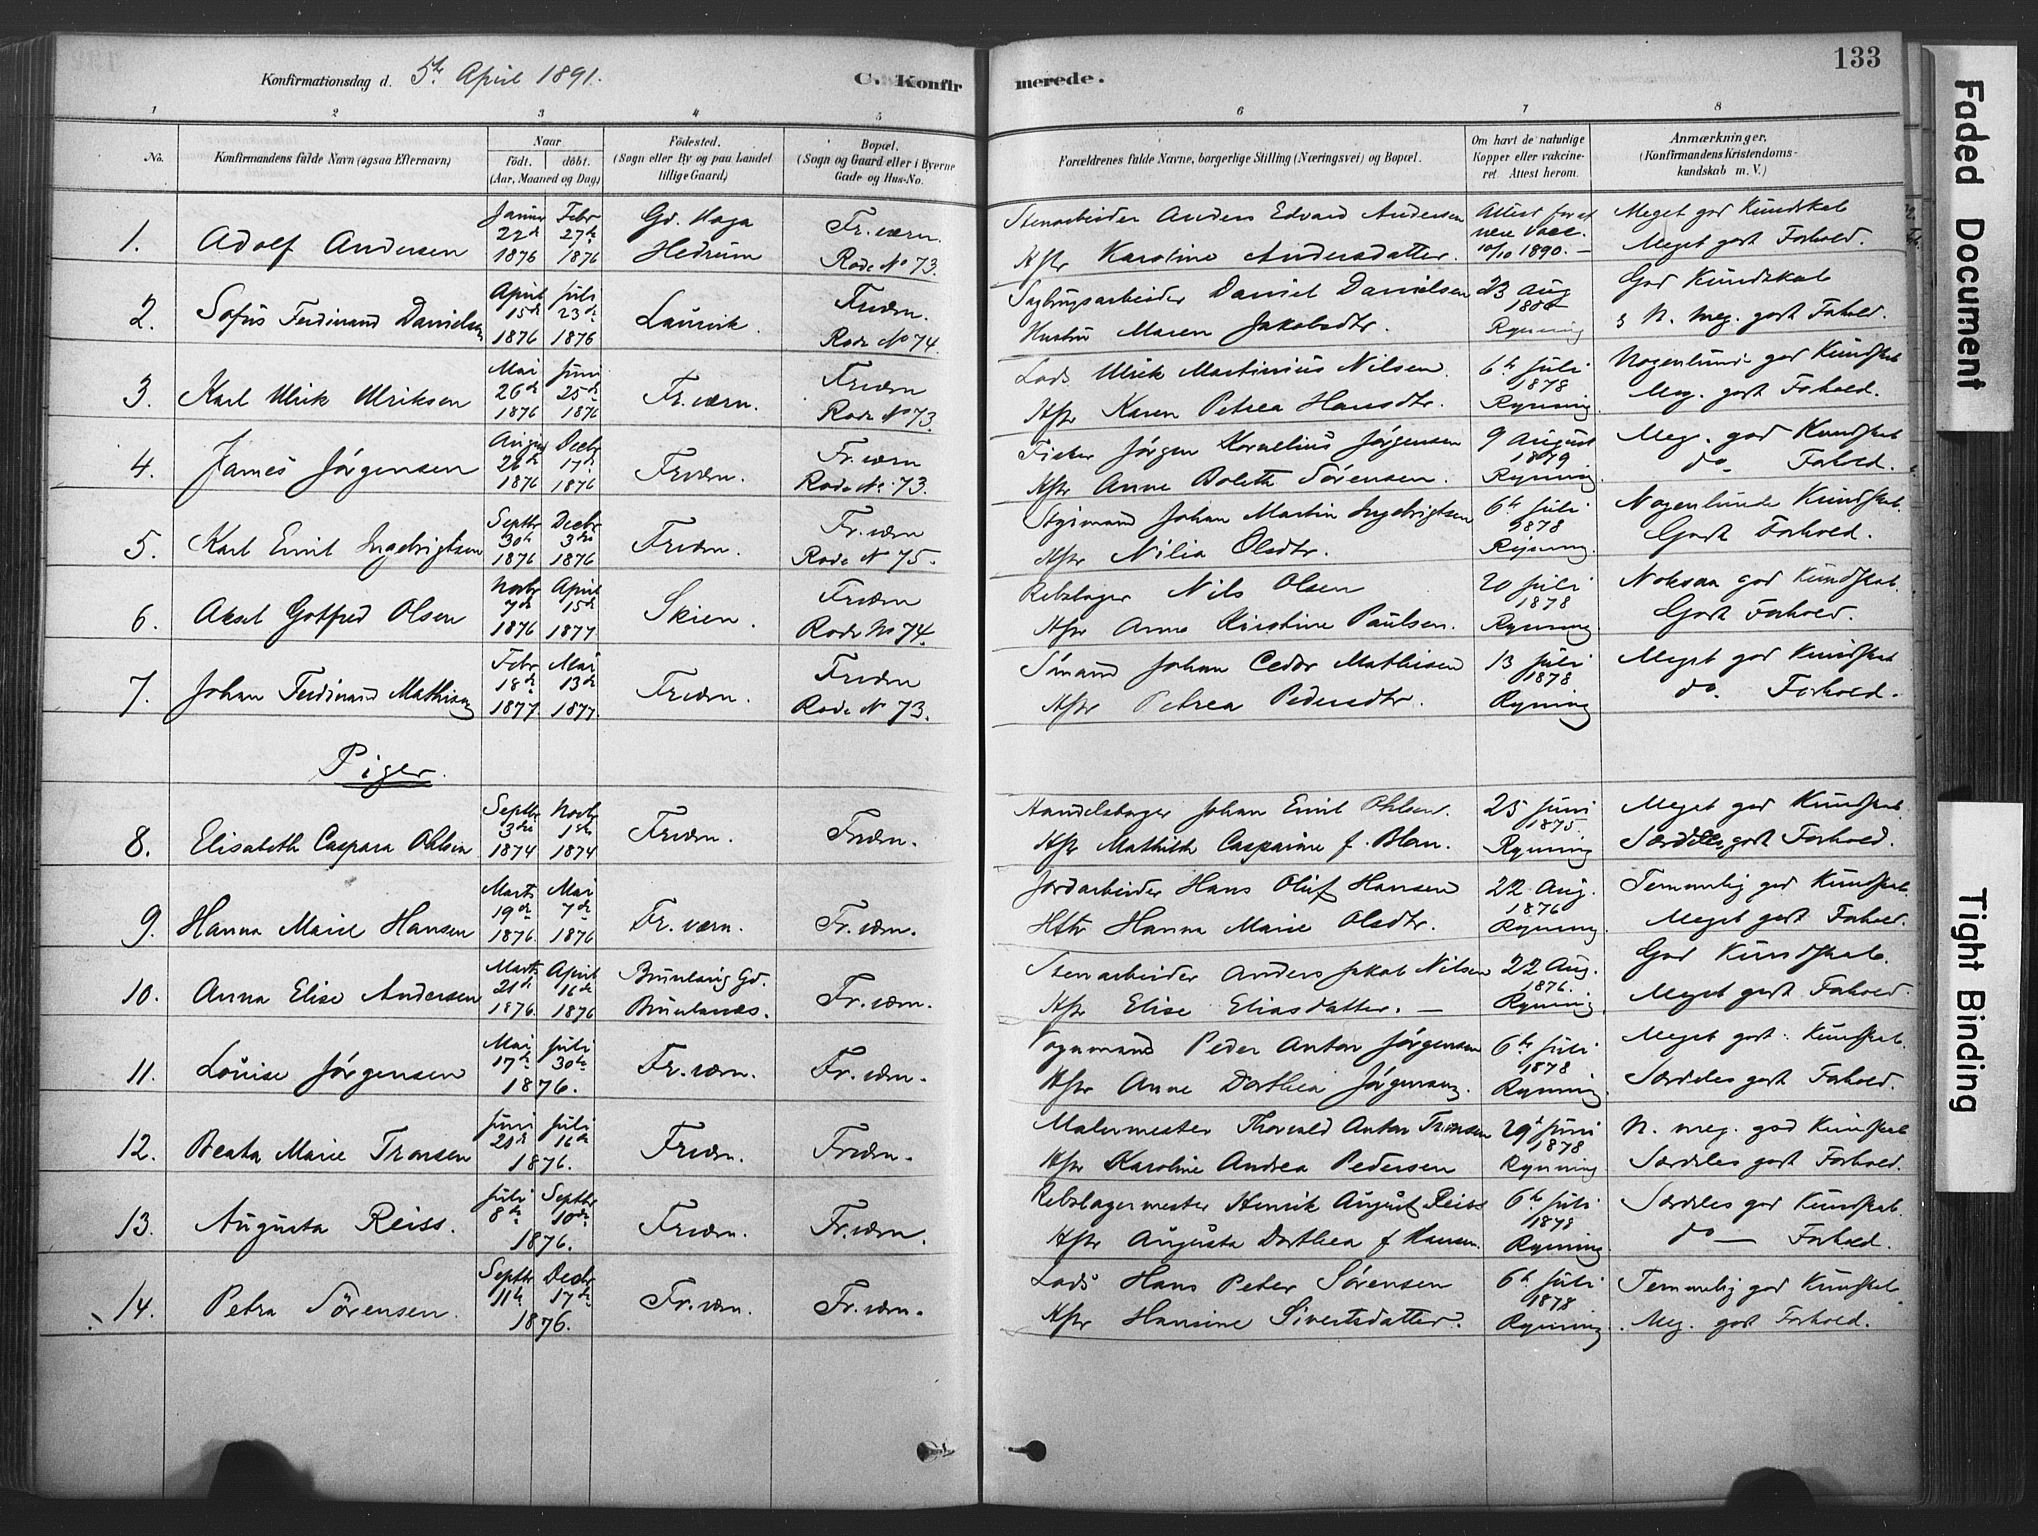 133
Konfirmationsdag d. 5te April 1891.
C. Konfir merede.
1 2 3 4 5 6 7 8
No.
Konfirmandens fulde Navn (ogsaa Efternavn)
Naar
født. døbt.
(Aar, Maaned og Dag)
Fødested.
(Sogn eller By og paa Landet
tillige Gaard)
Bopæl.
(Sogn og Gaard eller i Byerne
Gade og Hus-No.
Forældrenes fulde Navne, borgerlige Stilling (Næringsvei) og Bopæl.
Om havt de naturlige
Kopper eller vakcine-
ret. Attest herom.
Anmærkninger.
(Konfirmandens Kristendoms-
kundskab m. V.)
1. Adolf Andersen
Januar 22de 1876
Febr 27de 1876
Gd. Haga
Hedrum
Fr.værn.
Rode No 73.
Stenarbeider Anders Edvard Andersen
Hstr Karoline Andersdatter.
Attest for at
være vacc.
10/10 1890. –
Meget god Kundskab
Meget godt Forhold.
2. Sofus Ferdinand Danielsen
April 15de 1876
Juli 23de 1876
Laurvik.
Frværn.
Rode No 74.
Sagbrugsarbeider Daniel Danielsen
Hustru Maren Jakobsdtr.
23 Aug
Rynning
God Kundskab
N. meg. godt Fohold.
3. Karl Ulrik Ulriksen
Mai 26de 1876
Juni 25de 1876
Fr.værn.
Frværn
Rode No 73.
Lods Ulrik Martinius Nilsen.
Hstr Karen Petrea Hansdtr.
6te Juli
1878
Rynning.
Nogenlunde god Kundskab
Meg. godt Fohold.
4. James Jørgensen
August 26de 1876
Decbr 17de 1876
Frværn.
Fr.værn
Rode No. 73.
Fisker Jørgen Kornelius Jørgensen
Hstr Anne Boleth Sørensen.
9 August
1879
Rynning.
Meg. god Kundskab
do Fohold.
5. Karl Emil Ingebrigtsen
Septbr 30te 1876
Decbr 3die 1876
Frværn.
Fr.værn
Rode N 75.
Styrmand Johan Martin Ingebrigtsen
Hstr Nilia Olsdtr.
6te Juli
1878
Rynning.
Nogenlunde Kundskab.
Godt Forhold.
6. Aksel Gotfred Olsen
Novbr 7de 1876
April 15de 1877
Skien.
Frværn
Rode No 74.
Rebslager Nils Olsen
Hstr Anne Kirstine Paulsen.
20 Juli
1878
Rynning
Noksaa god Kundskab.
Godt Forhold.
7. Johan Ferdinand Mathisen
Febr 18de 1877.
Mai 13de 1877.
Frværn.
Frværn
Rode N 73.
Sømand Johan Ceder Mathisen
Hstr Petrea Pedersdtr.
13 Juli
1878
Rynning
Meget god Kundskab
do. Forhold.
Piger.
8. Elisabeth Caspara Ohlsen
Septbr 3die 1874
Novbr 1ste 1874
Frværn.
Frværn.
Handelsborger Johan Emil Ohlsen.
Hstr Mathilde Casparine f. Blom.
25 Juni
1875.
Rynning
Meget god Kundskab.
Særdeles godt Forhold.
9. Hanna Marie Hansen
Marts 19de 1876.
Mai 7de 1876
Fr.værn.
Fr.værn.
Jordarbeider Hans Oluf Hansen
Hstr Hanna Marie Olsdtr.
22 Aug.
1876
Rynning.
Temmelig god Kundskab.
Meget godt Forhold.
10. Anna Elise Andersen
Marts 21de 1876.
April 16de 1876
Brunlaug Gd.
Brunlanæs.
Fr.værn.
Stenarbeider Anders Jakob Nilsen
Hstr Elise Eliasdatter. –
22 Aug.
1876.
Rynning
God Kundskab.
Meget godt Forhold.
11. Louise Jørgensen
Mai 17de Juli 30te
1876.
Fr.værn.
Fr.værn.
Vognmand Peder Anton Jørgensen
Hstr Anne Dorthea Jørgensen.
6te Juli
1878
Rynning.
Meget god Kundskab.
Særdeles godt Fohold.
12. Beata Marie Tronsen
Juni 21de Juli 16de
1876.
Frværn.
Frværn.
Malermester Thorvald Anton Tronsen
Hstr Karoline Andrea Pedersen
29de Juni
1878
Rynning
N. meg. god Kundskab
Særdeles godt Forhold.
13. Augusta Reiss.
Juli 8de Septbr 10de
1876.
Frværn.
Fr.værn.
Rebslagermester Henrik August Reiss
Hstr Augusta Dorthea f Hansen.
6te Juli
1878
Rynning.
Særdeles god Kundskab.
do — Forhold.
14. Petra Sørensen.
Septbr 11te Decbr 17de
1876.
Fr.værn.
Fr.værn.
Lods Hans Peter Sørensen
Hstr Hansine Sivertsdatter.
6te Juli
1878
Rynning.
Temmelig god Kundskab.
Meg. godt Forhold.
Faded Document
Tight Binding